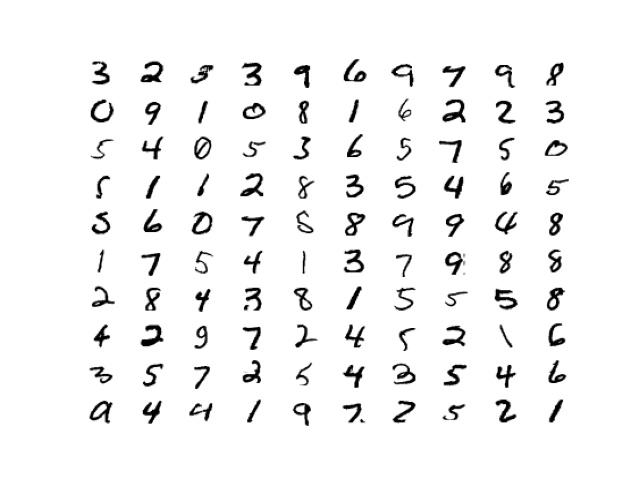 3 2 3 3 9 6 9 7 9 8
0 9 1 0 8 1 6 2 2 3
5 4 0 5 3 6 5 7 5 0
5 1 1 2 8 3 5 4 6 5
5 6 0 7 5 8 9 9 4 8
1 7 5 4 1 3 7 9 8 8
2 8 4 3 8 1 5 5 5 8
4 2 9 7 2 4 5 2 1 6
3 5 7 2 5 4 3 5 4 6
9 4 4 1 9 7 2 5 2 1